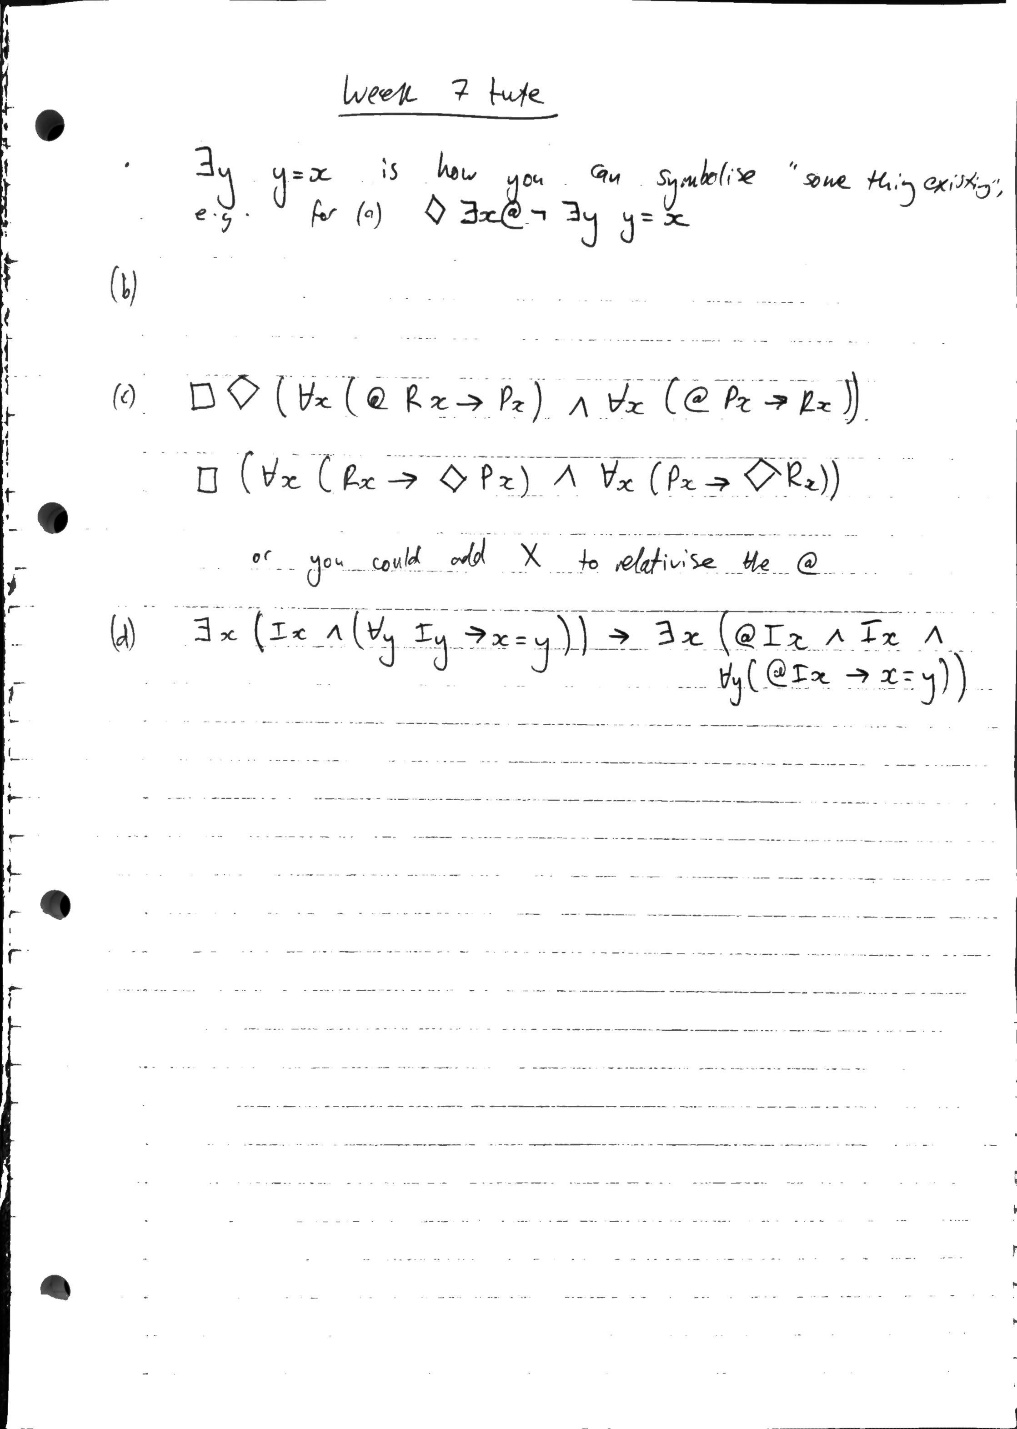 Week 7 tute
· ∃y y=x is how you can symbolise "some thing existing",
e.g. for (a) ◇ ∃x@¬ ∃y y=x
(b)
(c) □◇(∀x(@Rx→Px) ∧ ∀x(@Px→Rx))
□(∀x(Rx→◇Px) ∧ ∀x(Px→◇Rx))
or you could add X to relativise the @
(d) ∃x(Ix∧(∀y Iy→x=y))→∃x(@Ix∧Ix∧
∀y(@Ix→x=y))